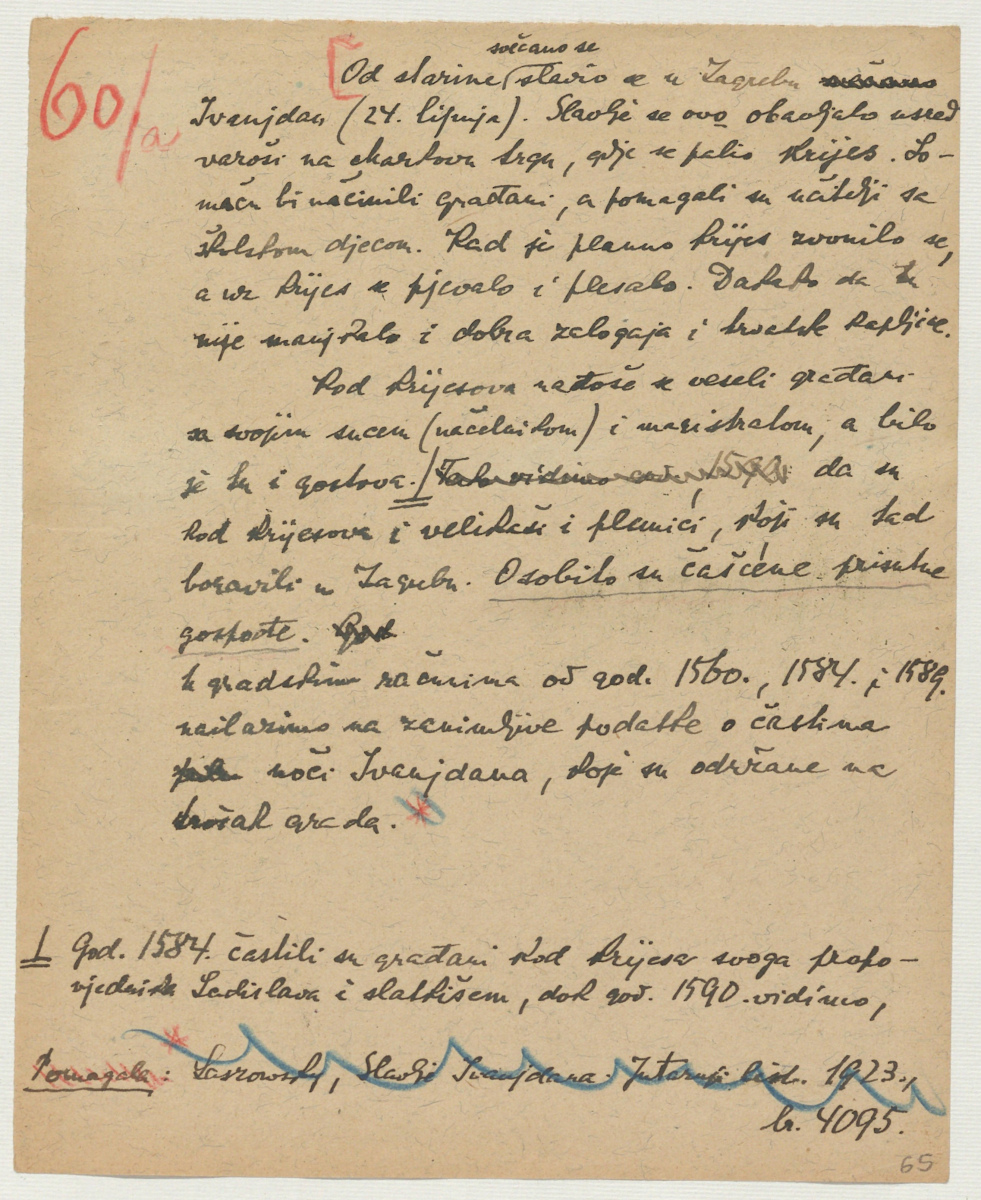 60/a
svečano se
[Od starine slavio se u Zagrebu svečano
Ivanjdan (24. lipnja). Slavlje se ovo obavljalo usred
varoši na Markovu trgu, gdje se palio krijes. Lo-
maču bi načinili građani, a pomagali su učitelji sa
školskom djecom. Kad je planuo krijes zvonilo se,
a uz krijes se pjevalo i plesalo. Dakako da tu
nije manjkalo i dobra zalogaja i hrvatske kapljice.
Kod krijesova nađoše se veseli građani
sa svojim sucem (načelnikom) i magistratom, a bilo
je tu i gostova. Tako vidimo 1590. da su
kod krijesova i velikaši i plemići, koji su tad
boravili u Zagrebu. Osobito su čašćene prisutne
gospođe. God
U gradskim računima od god. 1560., 1584. i 1589.
nailazimo na zanimljive podatke o častima
noći Ivanjdana, koje su održane na
trošak grada. *
1 God. 1584. častili su građani kod krijesa svoga propo-
vjednika Ladislava i slatkišem, dok god. 1590. vidimo,
*
Pomagala: Laszowsky, Slavlje Ivanjdana. Jutarnji list. 1923.,
br. 4095.
65